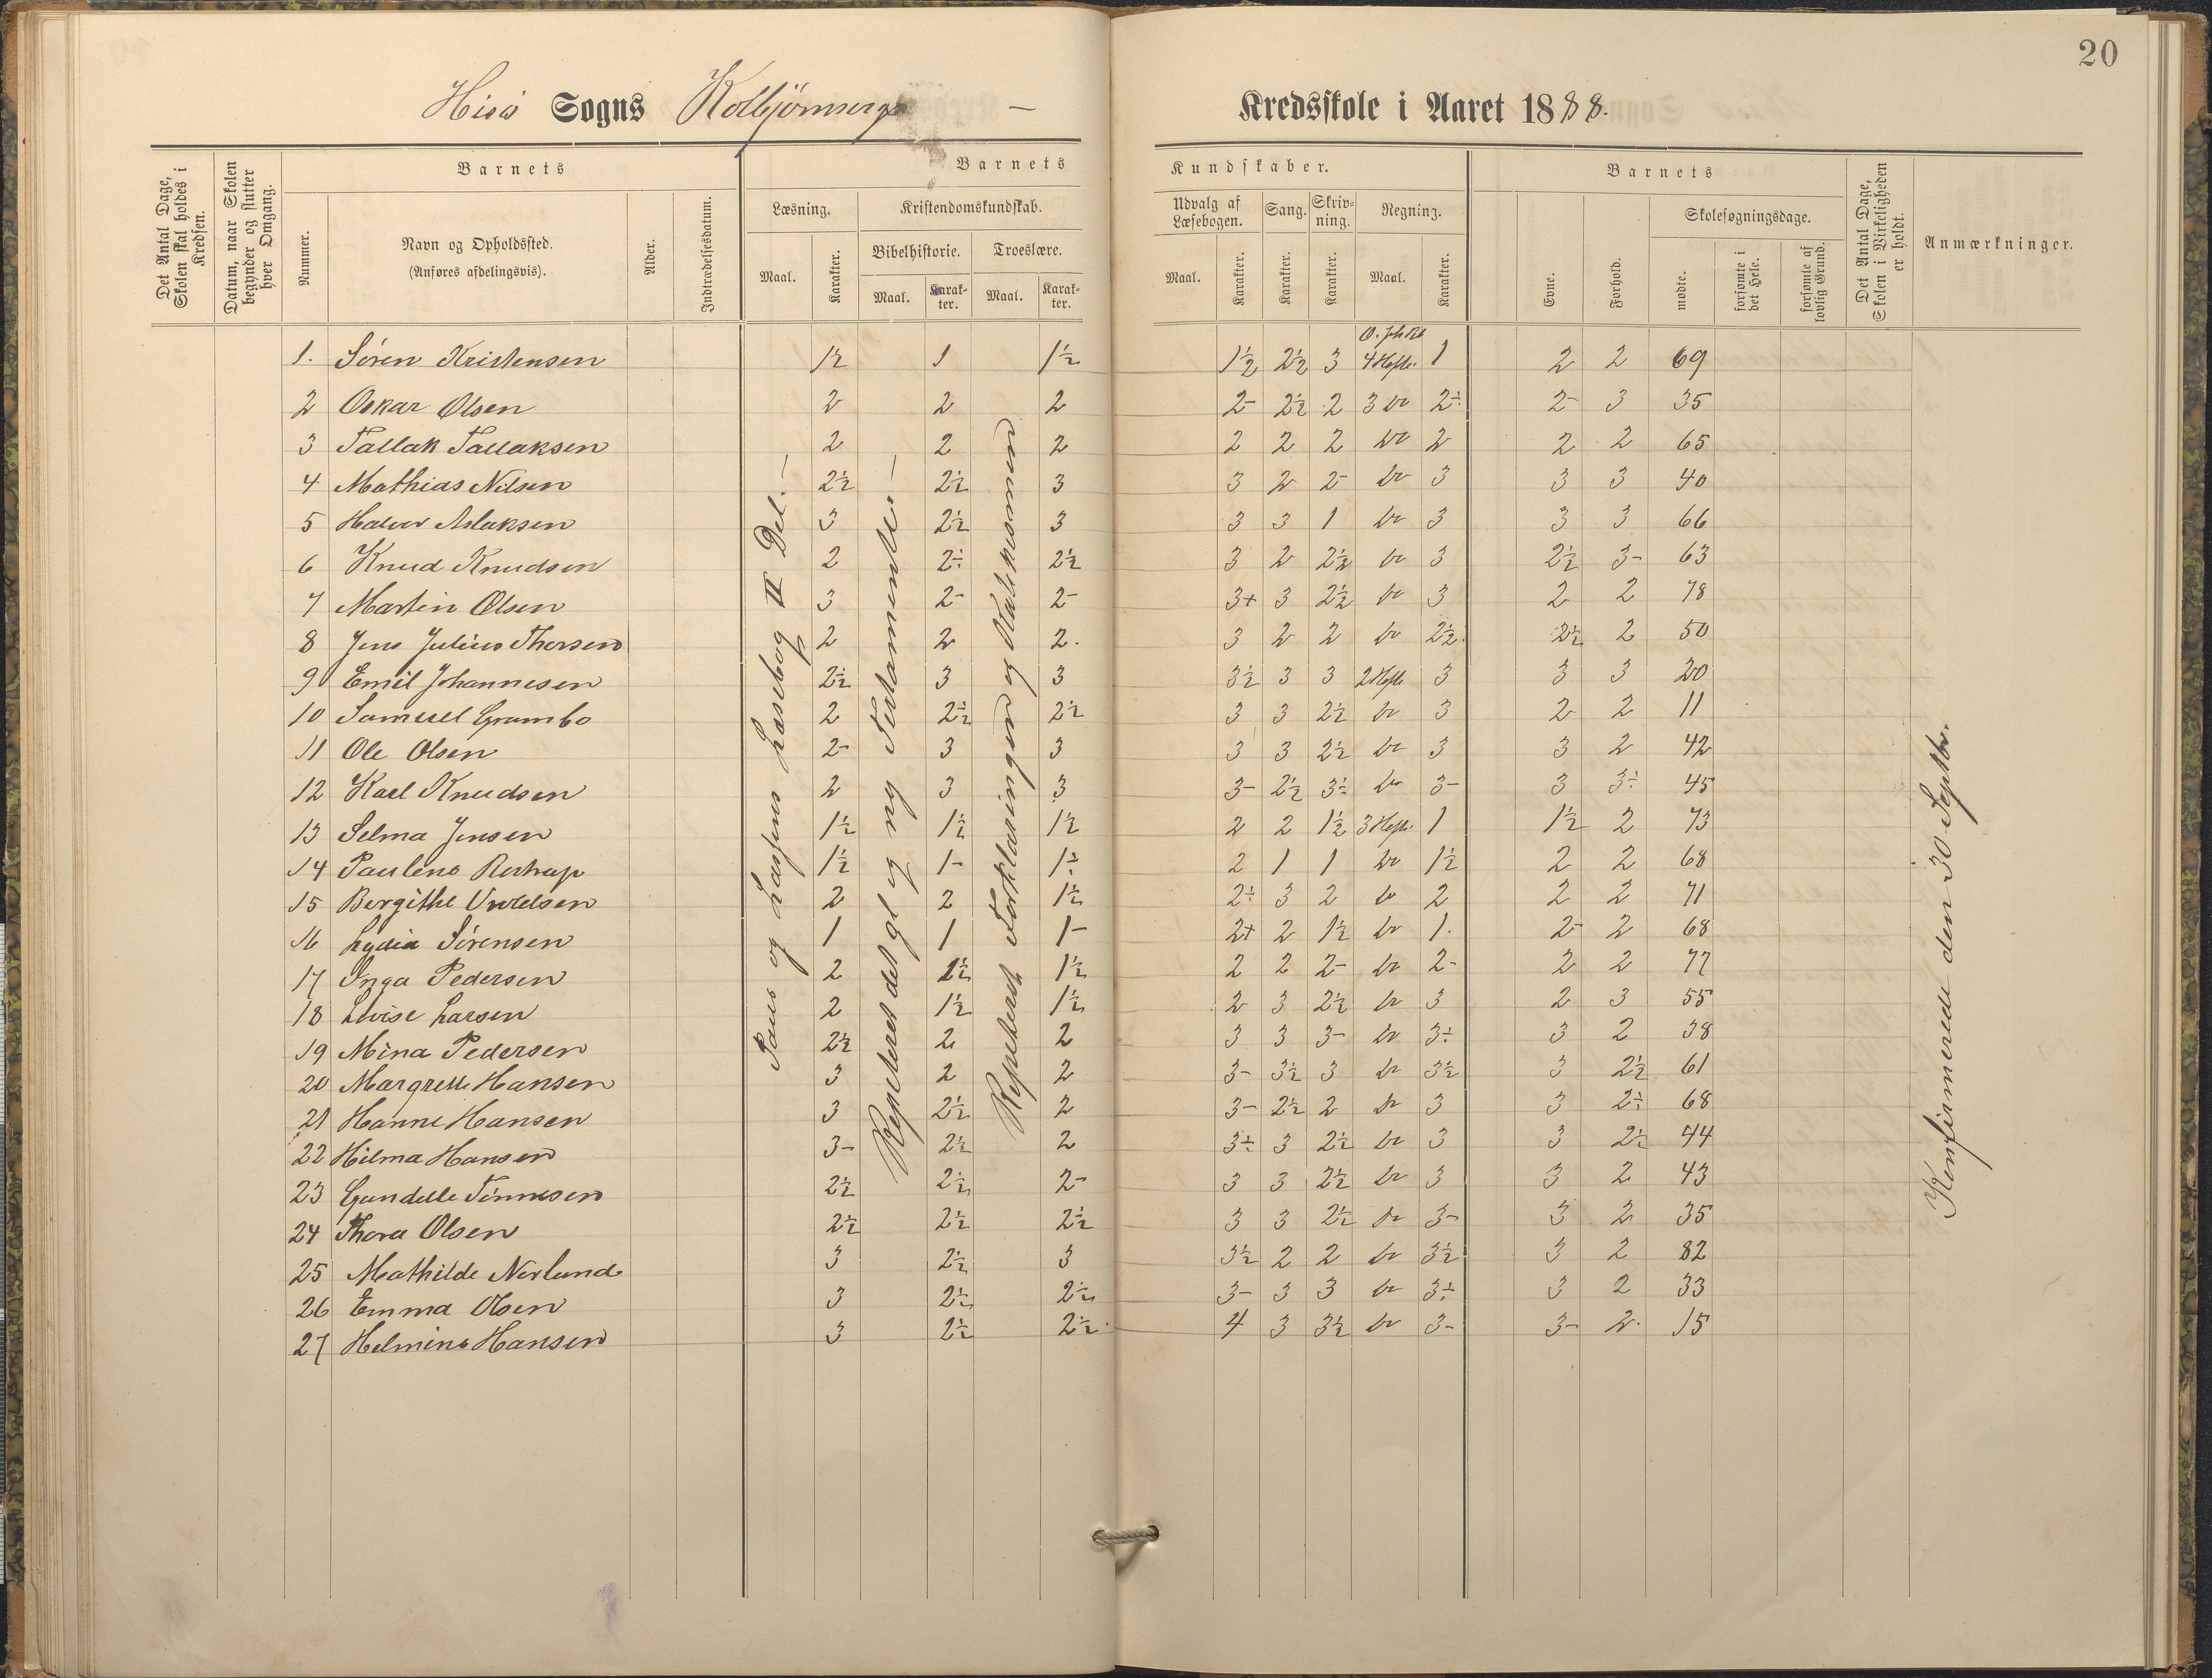 20
Hisö Sogns Kolbjörnsvigs — Kredsskole i Aaret 1888.
Det Antal Dage, Skolen skal holdes i Kredsen.
Datum, naar Skolen begynder og slutter hver Omgang.
Barnets
Nummer.
Navn og Opholdssted.
(Anføres afdelingsvis).
Alder.
Indtrædelsesdatum.
Barnets Kundskaber.
Læsning. Kristendomskundskab. Udvalg af Læsebogen. Sang. Skrivning. Regning.
Bibelhistorie. Troeslære.
Maal. Karakter. Maal. Karakter. Maal. Karakter. Maal. Karakter. Karakter. Karakter. Maal. Karakter.
Barnets
Evne. Forhold. Skolesøgningsdage.
mødte. forsømte i det Hele. forsømte af lovlig Grund.
Det Antal Dage, Skolen i Virkeligheden er holdt.
Anmærkninger.
1. Sören Kristensen 1½ 1 1½ 1½ 2½ 3 4 Hefte. 1 2 2 69
2 Oskar Olsen 2 2 2 2- 2½ 2 3 do 2÷ 2- 3 35
3 Tallak Tallaksen 2 2 2 2 2 2 do 2 2 2 65
4 Mathias Nilsen 2½ 2½ 3 3 2 2- do 3 3 3 40
5 Halvor Aslaksen 3 2½ 3 3 3 1 do 3 3 3 66
6 Knud Knudsen 2 2÷ 2½ 3 2 2½ do 3 2½ 3- 63
7 Martin Olsen 3 2- 2- 3+ 3 2½ do 3 2 2 78
8 Jens Julius Thorsen 2 2 2. 3 2 2 do 2½. 2½ 2 50
9 Emil Johannesen 2½ 3 3 3½ 3 3 2 Hefte 3 3 3 20
10 Samuel Grambo 2 2½ 2½ 3 3 2½ do 3 2 2 11
11 Ole Olsen 2- 3 3 3 3 2½ do 3 3 2 42
12 Karl Knudsen 2 3 3 3- 2½ 3÷ do 3- 3 3÷ 45
13 Selma Jensen 1½ 1½ 1½ 2 2 1½ 3 Heft. 1 1½ 2 73
14 Pauline Restrup 1½ 1- 1÷ 2 1 1 do 1½ 2 2 68
15 Bergithe 2 2 1½ 2÷ 3 2 do 2 2 2 71
16 Lydia Sörensen 1 1 1- 2+ 2 1½ do 1. 2- 2 68
17 Inga Pedersen 2 1½ 1½ 2 2 2- do 2- 2 2 77
18 Lovise Larsen 2 1½ 1½ 2 3 2½ do 3 2 3 55
19 Mina Pedersen 2½ 2 2 3 3 3- do 3÷ 3 2 38
20 Margrethe Hansen 3 2 2 3- 3½ 3 do 3½ 3 2½ 61
21 Hanne Hansen 3 2½ 2 3- 2½ 2 do 3 3 2÷ 68
22 Hilma Hansen 3- 2½ 2 3÷ 3 2½ do 3 3 2½ 44
23 Gundelle Tönnesen 2½ 2½ 2- 3 3 2½ do 3 3 2 43
24 Thora Olsen 2½ 2½ 2½ 3 3 2½ do 3- 3 2 35
25 Mathilde Norlund 3 2½ 3 3½ 2 2 do 3½ 3 2 82
26 Emma Olsen 3 2½ 2½ 3- 3 3 do 3÷ 3 2 33
27 Helmine Hansen 3 2½ 2½ 4 3 3½ do 3- 3- 2 15
Paus og Lassens Læsebog II Del. —
Repeteret det gl og ny Testamente. —
Repeteret Forklaringen og Katekismen
Konfirmerede den 30 Septbr.